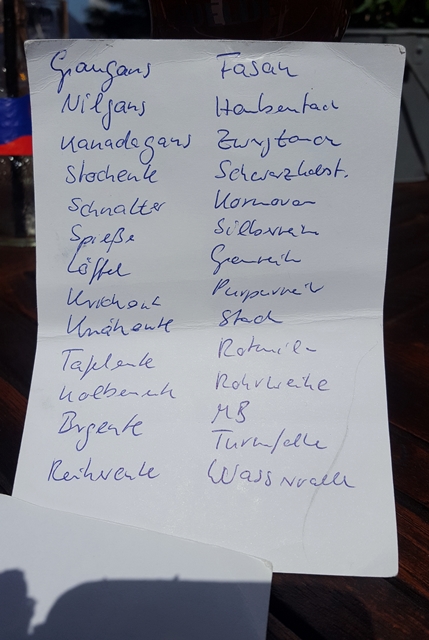 Graugans
Nilgans
Kanadagans
Stockente
Schnatter
Spieße
Löffel
Krickent
Knäkente
Tafelente
Kolbenente
Brgente
Reiherente
Fasan
Haubentau
Zwergtauch
Schwarzhalst.
Kormoran
Silberreih
Graureih
Purpurreih
Stoch
Rotmila
Rohrweihe
MB
Turmfalke
Wasserralle